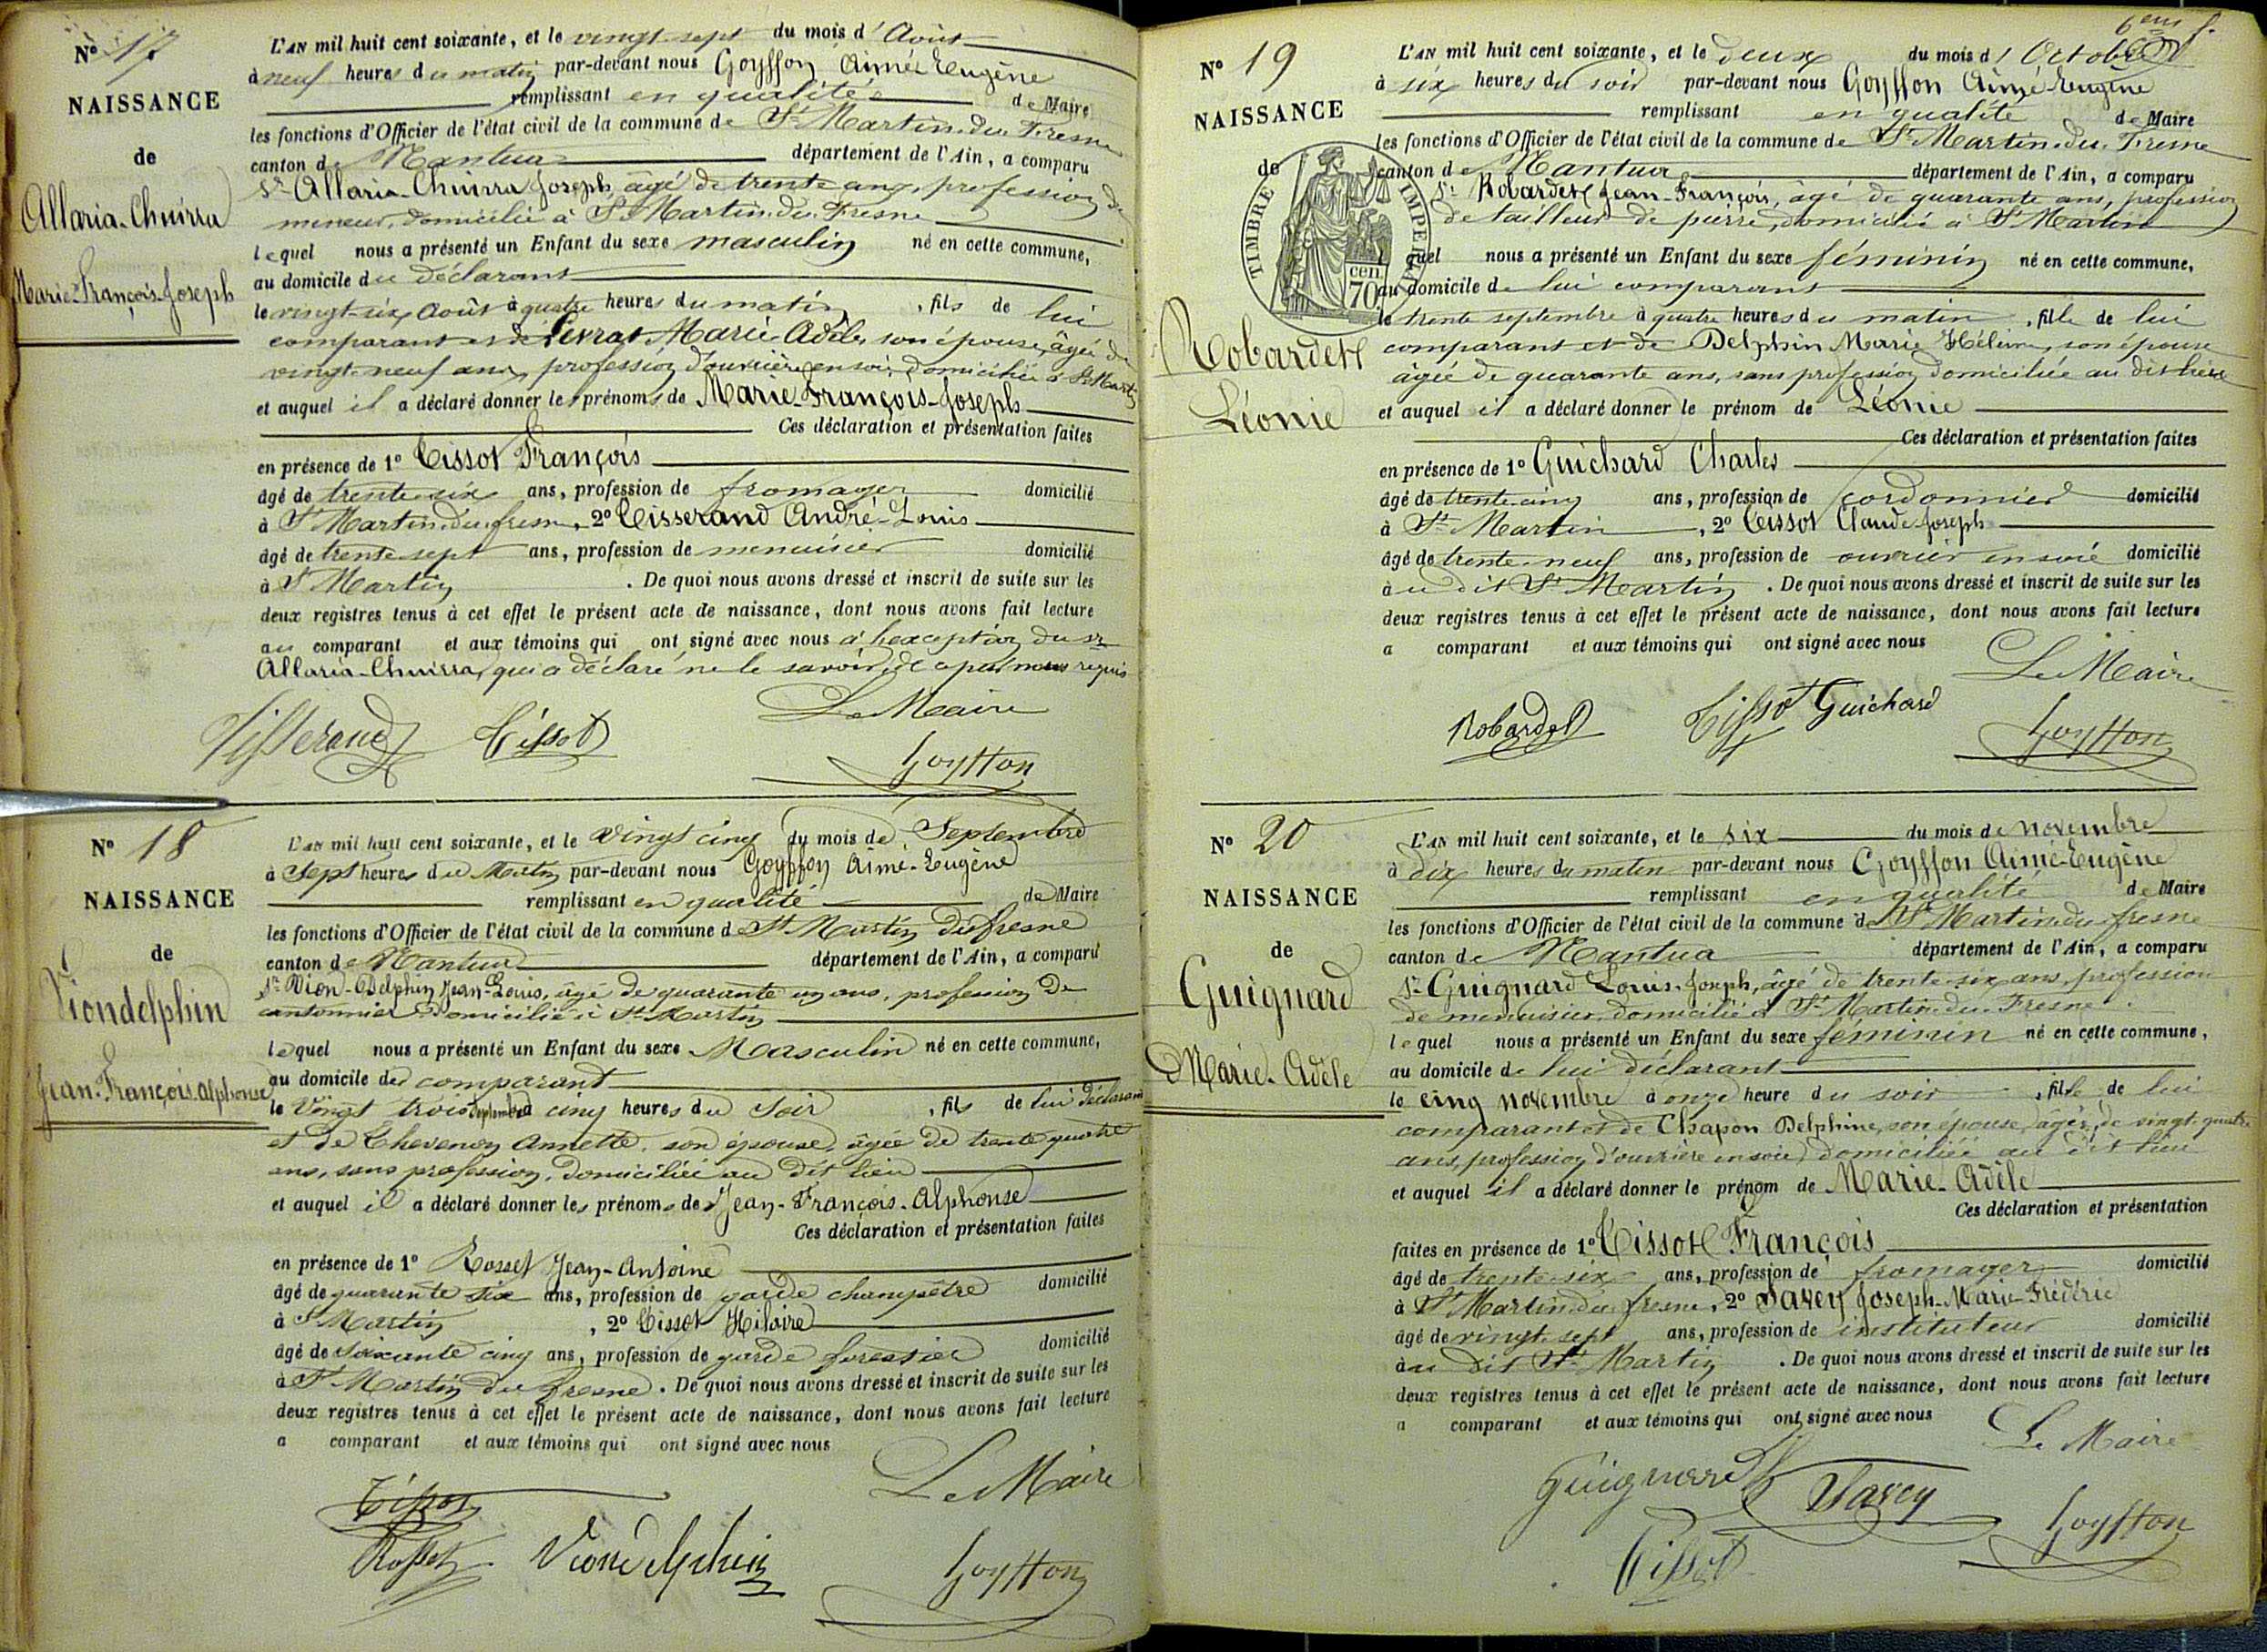 N° 17
NAISSANCE
de
Allaria-Chuirra
Marie-François-Joseph
L'AN mil huit cent soixante, et le vingt-sept du mois d'Août
à neuf heures du matin par-devant nous Goyffon Aimé Eugène
remplissant en qualité de Maire
les fonctions d'Officier de l'état civil de la commune de St Martin-du-Fresne
canton de Nantua département de l'Ain, a comparu
Sr Allaria-Chuirra Joseph, âgé de trente ans, profession de
mineur, domicilié à St Martin-du-Fresne
lequel nous a présenté un Enfant du sexe masculin né en cette commune,
au domicile du déclarant
le vingt-six Août à quatre heures du matin, fils de lui
comparant et de Levrat Marie Adèle, son épouse, âgée de
vingt-neuf ans, profession d'ouvrière en soie, domiciliée à St Martin
et auquel il a déclaré donner les prénoms de Marie-François-Joseph
Ces déclaration et présentation faites
en présence de 1° Tissot François
âgé de trente-six ans, profession de fromager domicilié
à St Martin-du-fresne, 2° Tisserand André-Louis
âgé de trente sept ans, profession de menuisier domicilié
à St Martin. De quoi nous avons dressé et inscrit de suite sur les
deux registres tenus à cet effet le présent acte de naissance, dont nous avons fait lecture
au comparant et aux témoins qui ont signé avec nous à l'exception du sr
Allaria-Chuirra, qui a déclaré ne le savoir, de ce par nous requis
Le Maire
Tisserand Tissot
Goyffon
N° 18
NAISSANCE
de
Viondelphin
Jean-François-Alphonse
L'AN mil huit cent soixante, et le vingt cinq du mois de Septembre
à Sept heures du Matin par-devant nous Goyffon Aimé-Eugène
remplissant en qualité de Maire
les fonctions d'Officier de l'état civil de la commune de St Martin du fresne
canton de Nantua département de l'Ain, a comparu
Sr Vion-Delphin Jean-Louis, âgé de quarante un ans, profession de
cantonnier domicilié à St Martin
lequel nous a présenté un Enfant du sexe Masculin né en cette commune,
au domicile du comparant
le Vingt trois Septembre à cinq heures du Soir, fils de lui déclarant
et de Thevenon Annette, son épouse, âgée de trente quatre
ans, sans profession, domiciliée au dit lieu
et auquel il a déclaré donner les prénoms de Jean-François-Alphonse
Ces déclaration et présentation faites
en présence de 1° Rosset Jean-Antoine
âgé de quarante six ans, profession de garde champêtre domicilié
à St Martin, 2° Tissot Hilaire
âgé de soixante cinq ans, profession de garde forestier domicilié
à St Martin du fresne. De quoi nous avons dressé et inscrit de suite sur les
deux registres tenus à cet effet le présent acte de naissance, dont nous avons fait lecture
a comparant et aux témoins qui ont signé avec nous
Le Maire
Tissot
Rosset Viondelphin
Goyffon
6eme f.
N° 19
NAISSANCE
de
TIMBRE IMPERIAL
70 cen
Robardet
Léonie
L'AN mil huit cent soixante, et le deux du mois d'Octobre
à six heures du soir par-devant nous Goyffon Aimé-Eugène
remplissant en qualité de Maire
les fonctions d'Officier de l'état civil de la commune de St Martin-du-Fresne
canton de Nantua département de l'Ain, a comparu
Sr Robardet Jean-François, âgé de quarante ans, profession
de tailleur de pierre, domicilié à St Martin
lequel nous a présenté un Enfant du sexe féminin né en cette commune,
au domicile de lui comparant
le trente septembre à quatre heures du matin, fille de lui
comparant et de Delphin Marie Hélène, son épouse
âgée de quarante ans, sans profession domiciliée au dit lieu
et auquel il a déclaré donner le prénom de Léonie
Ces déclaration et présentation faites
en présence de 1° Guichard Charles
âgé de trente-cinq ans, profession de cordonnier domicilié
à St Martin, 2° Tissot Claude-Joseph
âgé de trente-neuf ans, profession de ouvrier en soie domicilié
à u dit St Martin. De quoi nous avons dressé et inscrit de suite sur les
deux registres tenus à cet effet le présent acte de naissance, dont nous avons fait lecture
a comparant et aux témoins qui ont signé avec nous
Le Maire
Robardet Tissot Guichard
Goyffon
N° 20
NAISSANCE
de
Guignard
Marie-Adèle
L'AN mil huit cent soixante, et le six du mois de novembre
à dix heures du matin par-devant nous Goyffon Aimé-Eugène
remplissant en qualité de Maire
les fonctions d'Officier de l'état civil de la commune de St Martin-du-fresne
canton de Nantua département de l'Ain, a comparu
Sr Guignard Louis-Joseph, âgé de trente-six ans, profession
de menuisier, domicilié à St Martin-du-Fresne
lequel nous a présenté un Enfant du sexe féminin né en cette commune,
au domicile de lui déclarant
le cinq novembre à onze heure du soir, fille de lui
comparant et de Chapon Delphine, son épouse, âgée, de vingt-quatre
ans, profession d'ouvrière en soie, domiciliée au dit lieu
et auquel il a déclaré donner le prénom de Marie-Adèle
Ces déclaration et présentation
faites en présence de 1° Tissot François
âgé de trente-six ans, profession de fromager domicilié
à St Martin-du-fresne, 2° Savey Joseph-Marie-Frédéric
âgé de vingt-sept ans, profession de instituteur domicilié
à u dit St Martin. De quoi nous avons dressé et inscrit de suite sur les
deux registres tenus à cet effet le présent acte de naissance, dont nous avons fait lecture
a comparant et aux témoins qui ont signé avec nous
Le Maire
Guignard Savey
Tissot
Goyffon